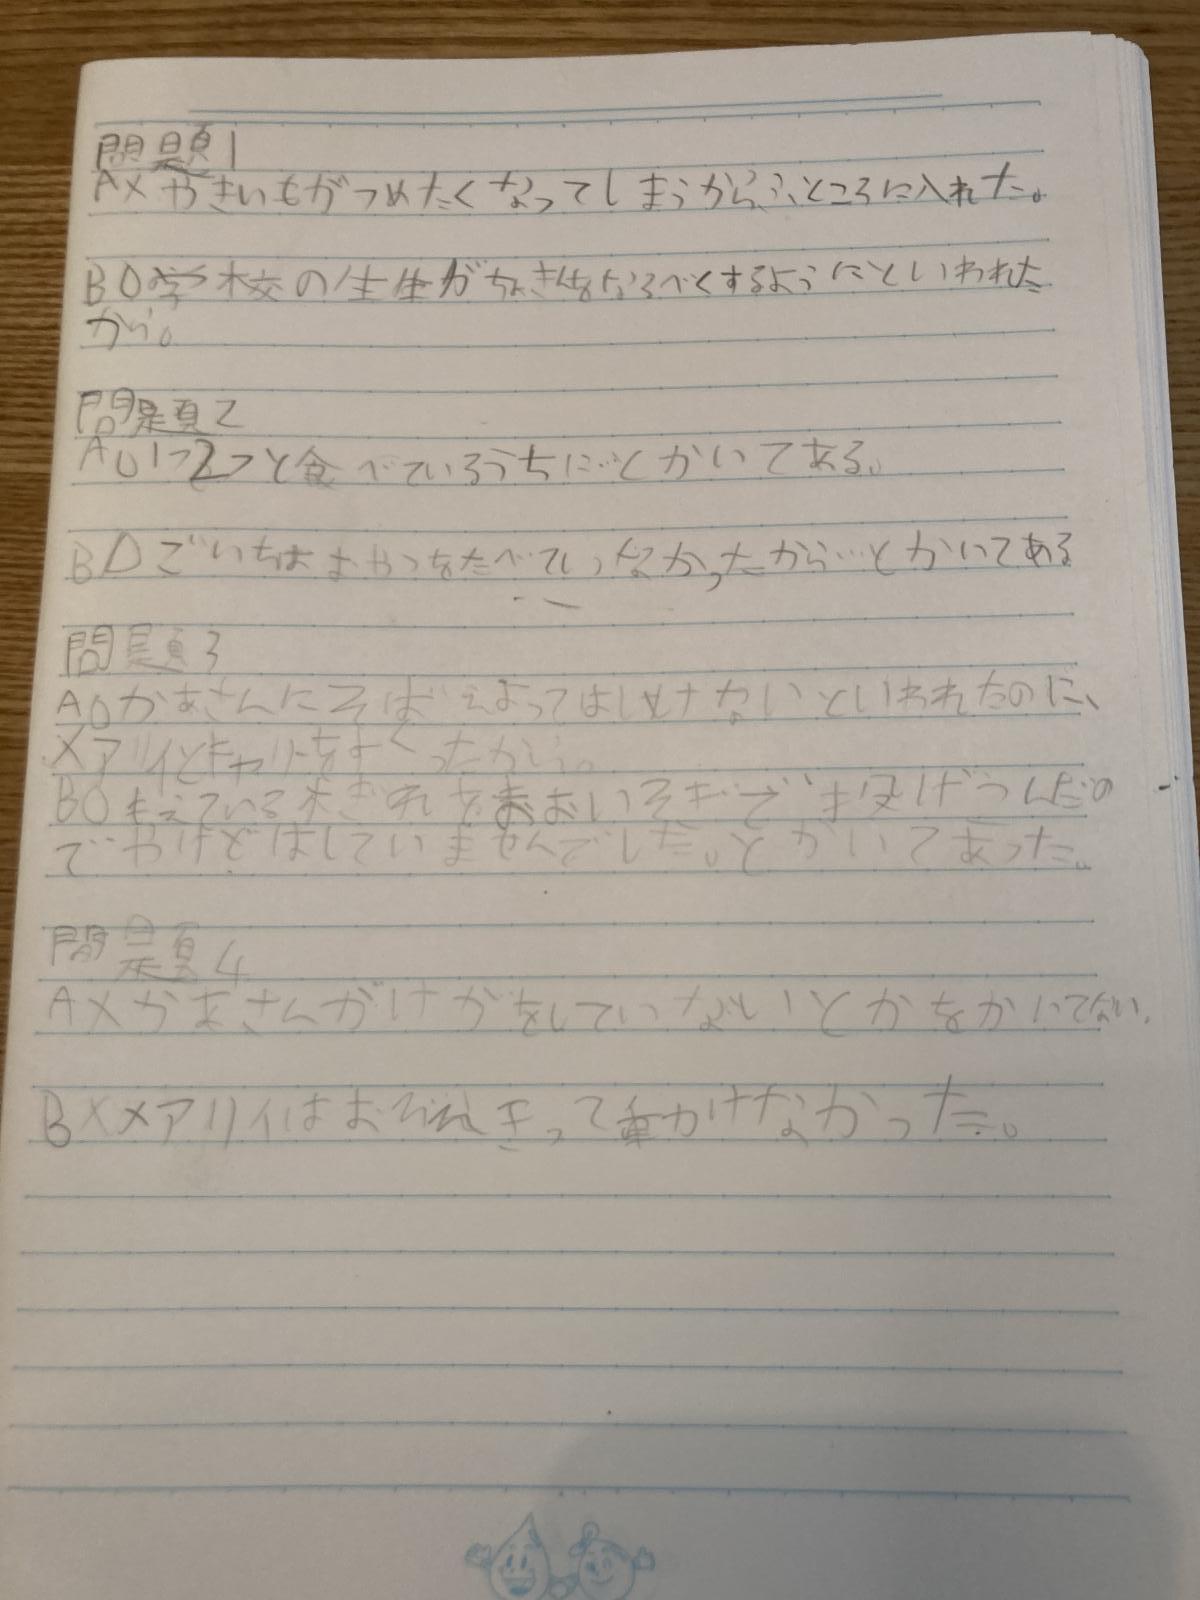 問題1
A×やきいもがつめたくなってしまうからふところに入れた。
B○学校の先生がちょきんをなるべくするようにといわれた
から。
問題2
A○1つ2つと食べているうちに…とかいてある。
B△ごいちはおやつをたべていなかったから…とかいてある
問題3
A○かあさんにそばえよってはいけないといわれたのに、
メアリイとキャリーをすくったから。
B○もえている木ぎれをおおいそぎで
でやけどはしていませんでした。とかいてあった。
問題4
A×かあさんがけがをしていないとかをかいてない.
B×メアリイはおびえきって動かけなかった。